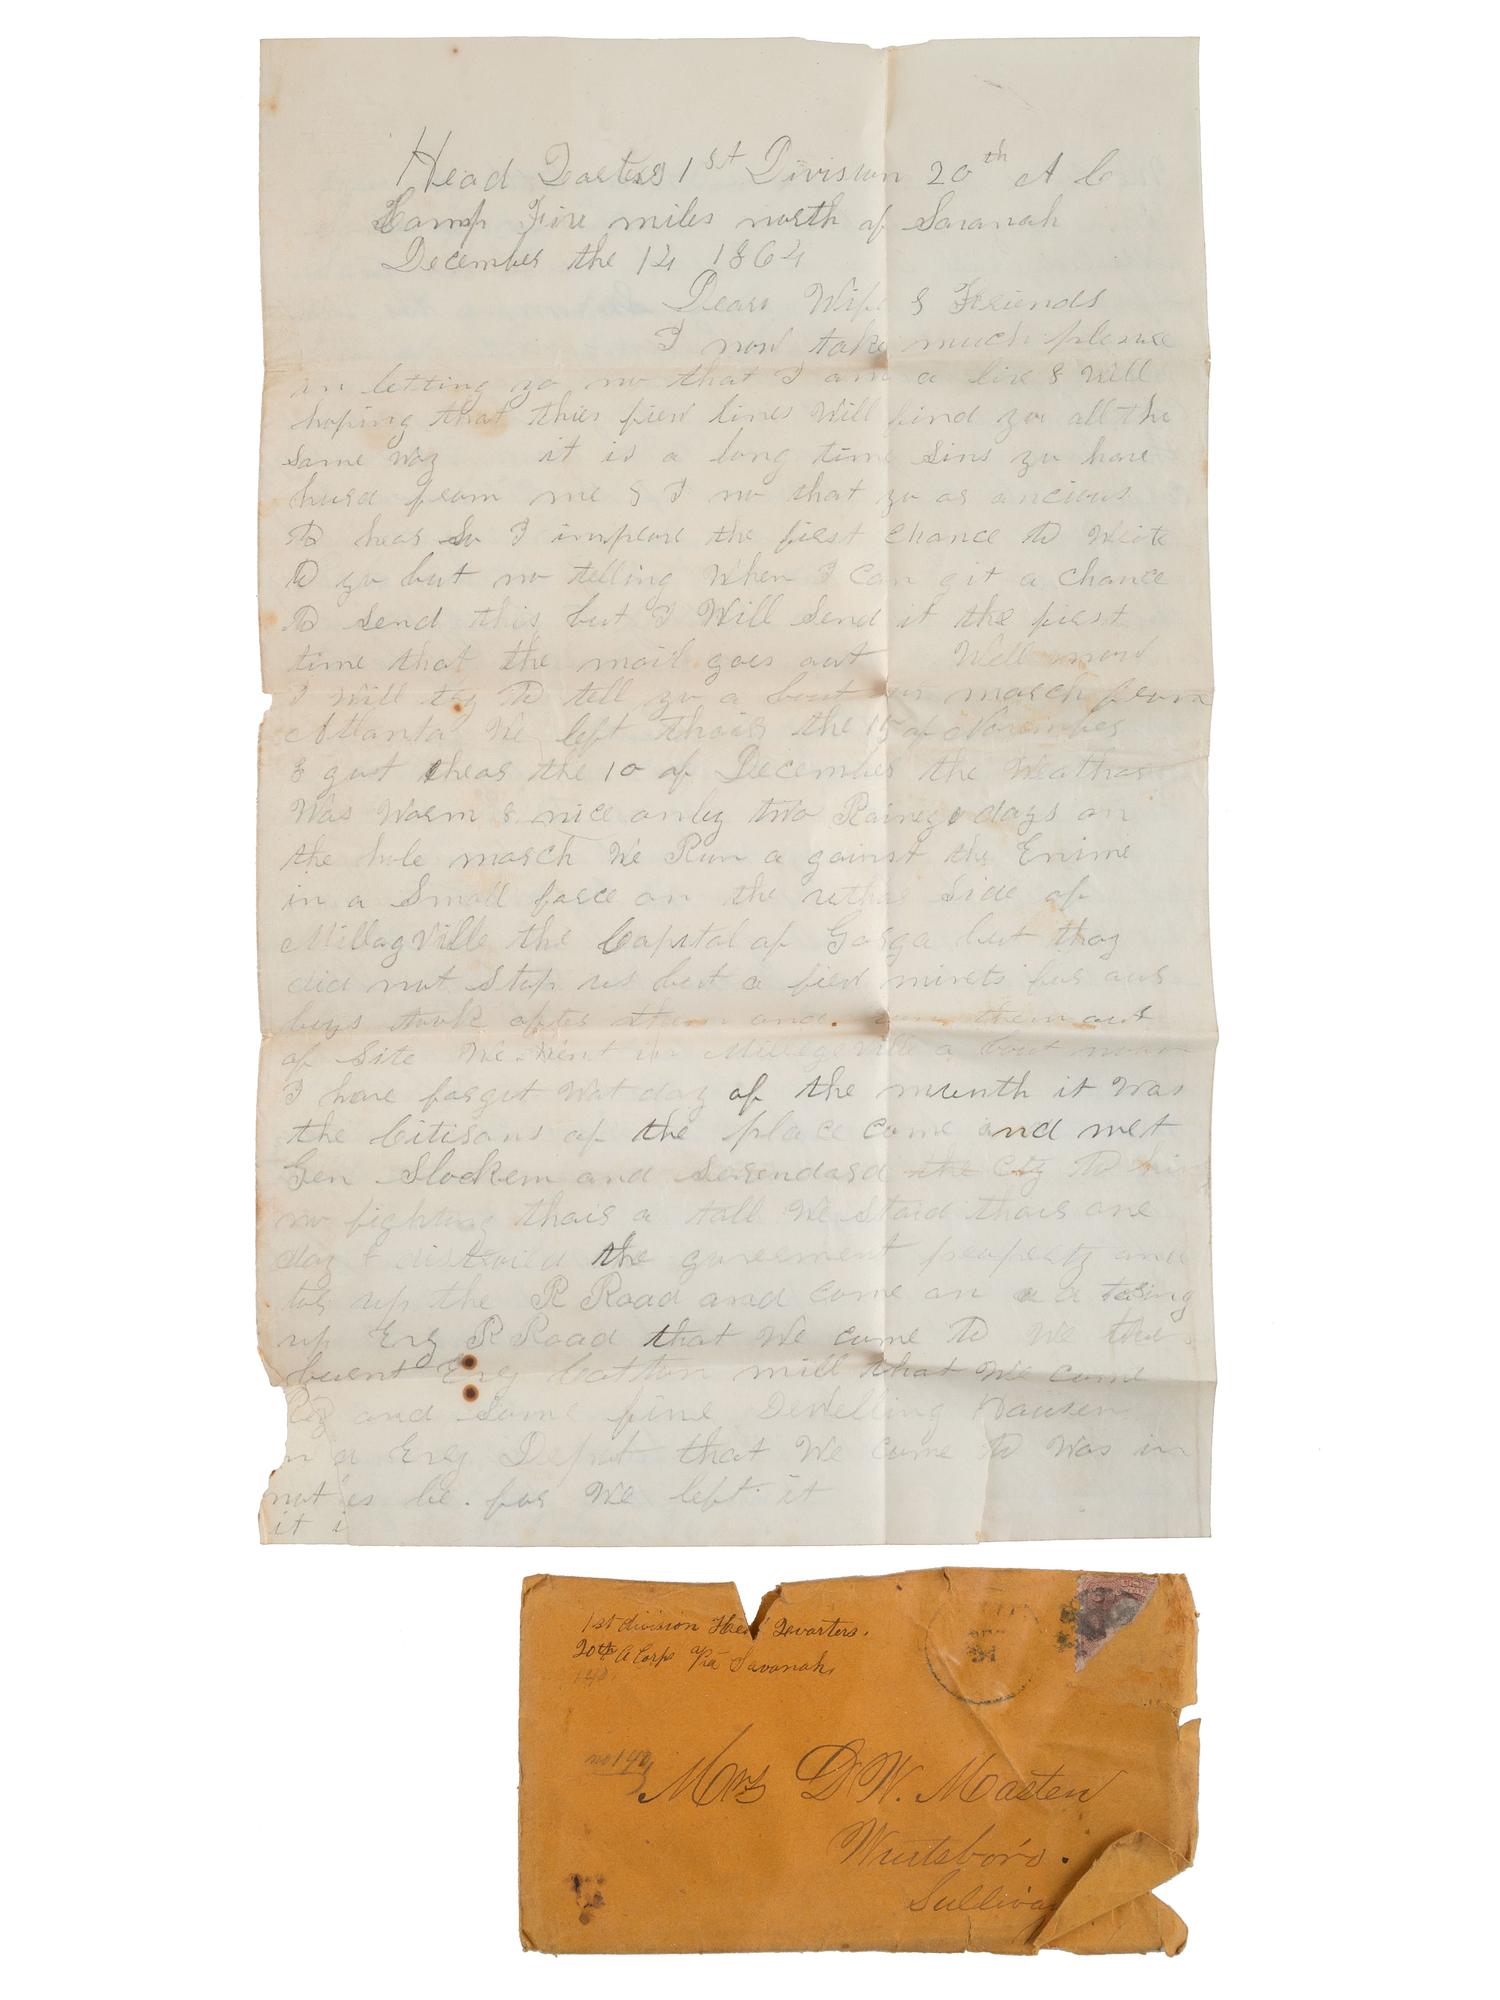 Head Qarters 1st Division 20th A C
Camp Fire miles north of Savanah
December the 14 1864
Dear Wife & Friends
I now take much plesure
in letting yo no that I am a live & Will
hoping that thies fiew lines Will find yu all the
same way it is a long time Sins yu have
hurd from me & I no that yu ar ancious
to hear So I improve the first Chance to Write
to yu but no telling When I Can git a Chance
to send this but I Will Send it the first
time that the mail goes aut Well now
I Will try to tell yu a bout our march from
Atlanta We left thair the 15 of November
& gut thear the 10 of December the Weather
Was Warm & nice only two Rainey days on
the hole march We Run a gainst the Enime
in a Small force on the uther Side of
MillagVille the Capital of Gorga but thay
did not Stop us but a fiew minets for aur
boys took after them and run them out
of Site We Went in MillegeVille a bout noon
I have forgut Wat day of the munth it Was
the Citisans of the place come and met
Gen Slockem and Serendard the City to him
no fighting thair a tall We Staid thair one
day & distroied the guverment property and
tor up the R Road and come on a taring
up Evry R Road that We come to We
burnt Evry Cotton mill that We come
and Some fine Dewelling Hausen
Evry Deput that We come to Was in
es be for We left it
it i
1st division Head Quarters.
20th A Corps Via Savanah,
no 149
Mrs D. W. Masten
Wurtsboro.
Sullivan